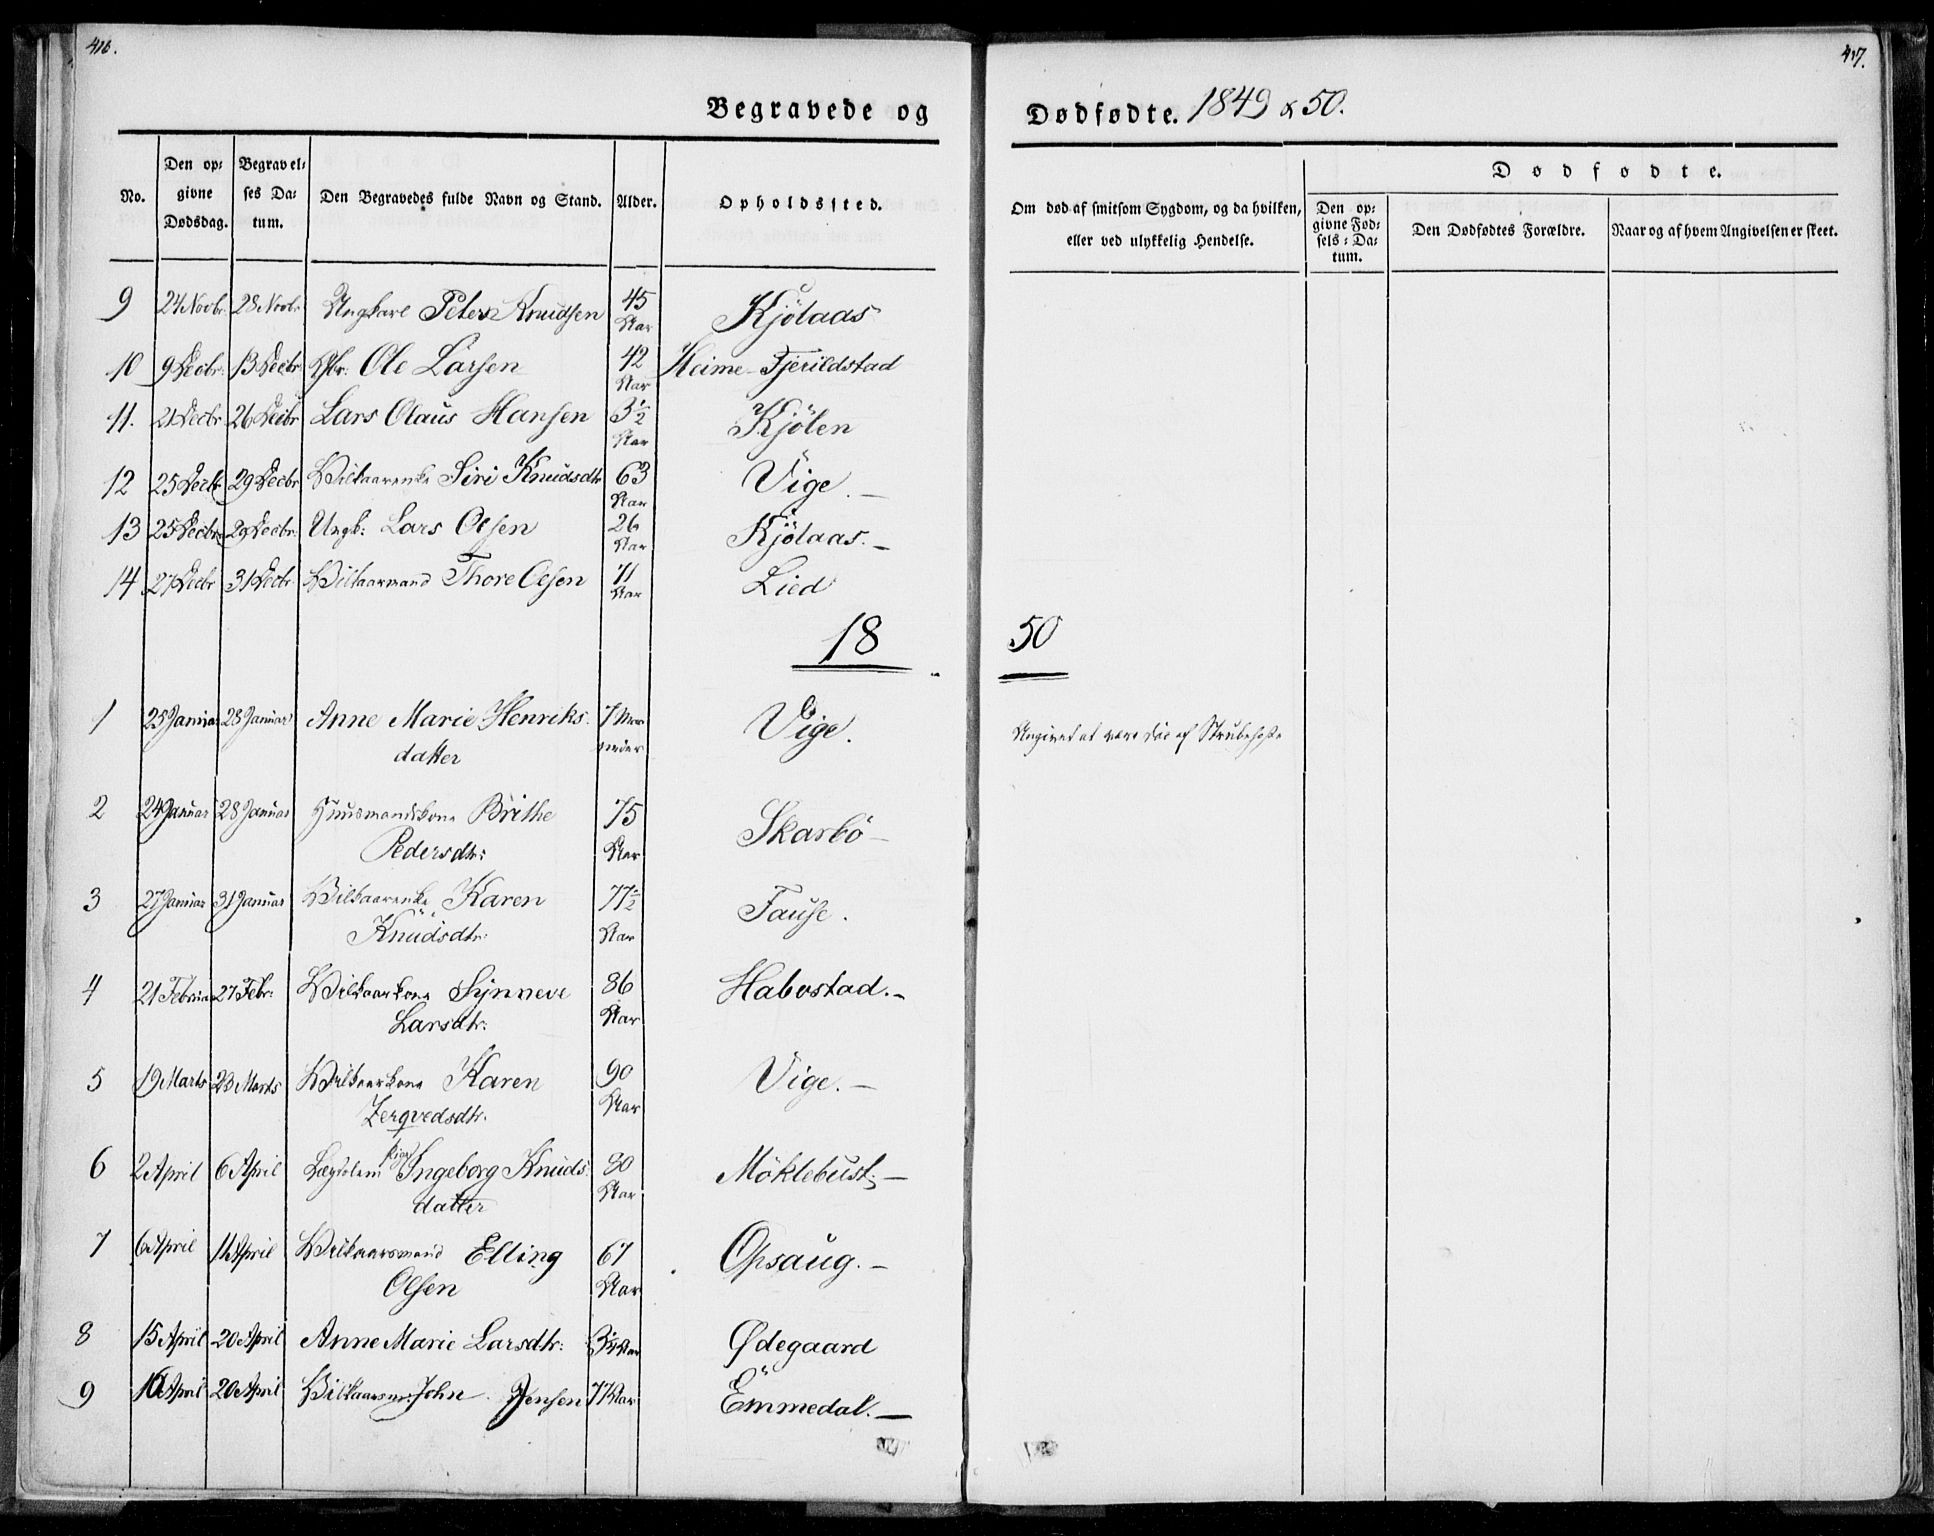 416.
417.
Begravede og Dødfødte. 1849 & 50.
No.
Den op-
givne
Dødsdag.
Begravel-
ses Da-
tum.
Den Begravedes fulde Navn og Stand.
Alder.
Opholdssted.
Om død af smitsom Sygdom, og da hvilken,
eller ved ulykkelig Hendelse.
Dødfødte.
Den op-
givne Fød-
sels-Da-
tum.
Den Dødfødtes Forældre.
Naar og af hvem Angivelsen er skeet.
9 24 Novbr. 28 Novbr Ungkarl Peter Knudsen 45 Aar Kjölaas
10 9 Decbr. 13 Decbr. Ole Larsen 42 Aar Heime-Fjerildstad
11. 21 Decbr 26 Decbr Lars Olaus Hansen 3½ Aar Kjölen
12 25 Decbr 29 Decbr Vilkaarenke Siri Knudsdtr 63 Aar Vige. —
13 25 Decbr. 29 Decbr. Ungk: Lars Olsen 26 Aar Kjölaas. —
14 27 Decbr 31 Decbr Vilkaarmand Thore Olsen 71 Aar Lied
1850
1 25 Januar 28 Januar Anne Marie Henriks- 7 Maa-
datter neder
Vige.
Angivet at være död af Strubehoste
2 24 Januar 28 Januar Huusmandskone Brithe 75
Pedersdtr: Aar
Skarbö —
3 27 Januar 31 Januar Vilkaarenke Karen 77½
Knudsdtr: Aar
Fause.
4 21 Februar 27 Febr: Vilkaarkone Synneve 86
Larsdtr: Aar
Habostad. —
5 19 Marts 23 Marts Vilkaarkone Karen 90
Zerqvedsdtr. Aar
Vige. —
6 2 April 6 April Lægdslem Ingeborg Knuds- 80
datter Aar
Möklebust. —
7 6 April 11 April Vilkaarsmand Elling 67
Olsen Aar
Opsaug. —
8 15 April 20 April Anne Marie Larsdtr: Aar Ødegaard
9 16 April 20 April Vilkaarsm: John Jensen 77 Aar Emmedal. —